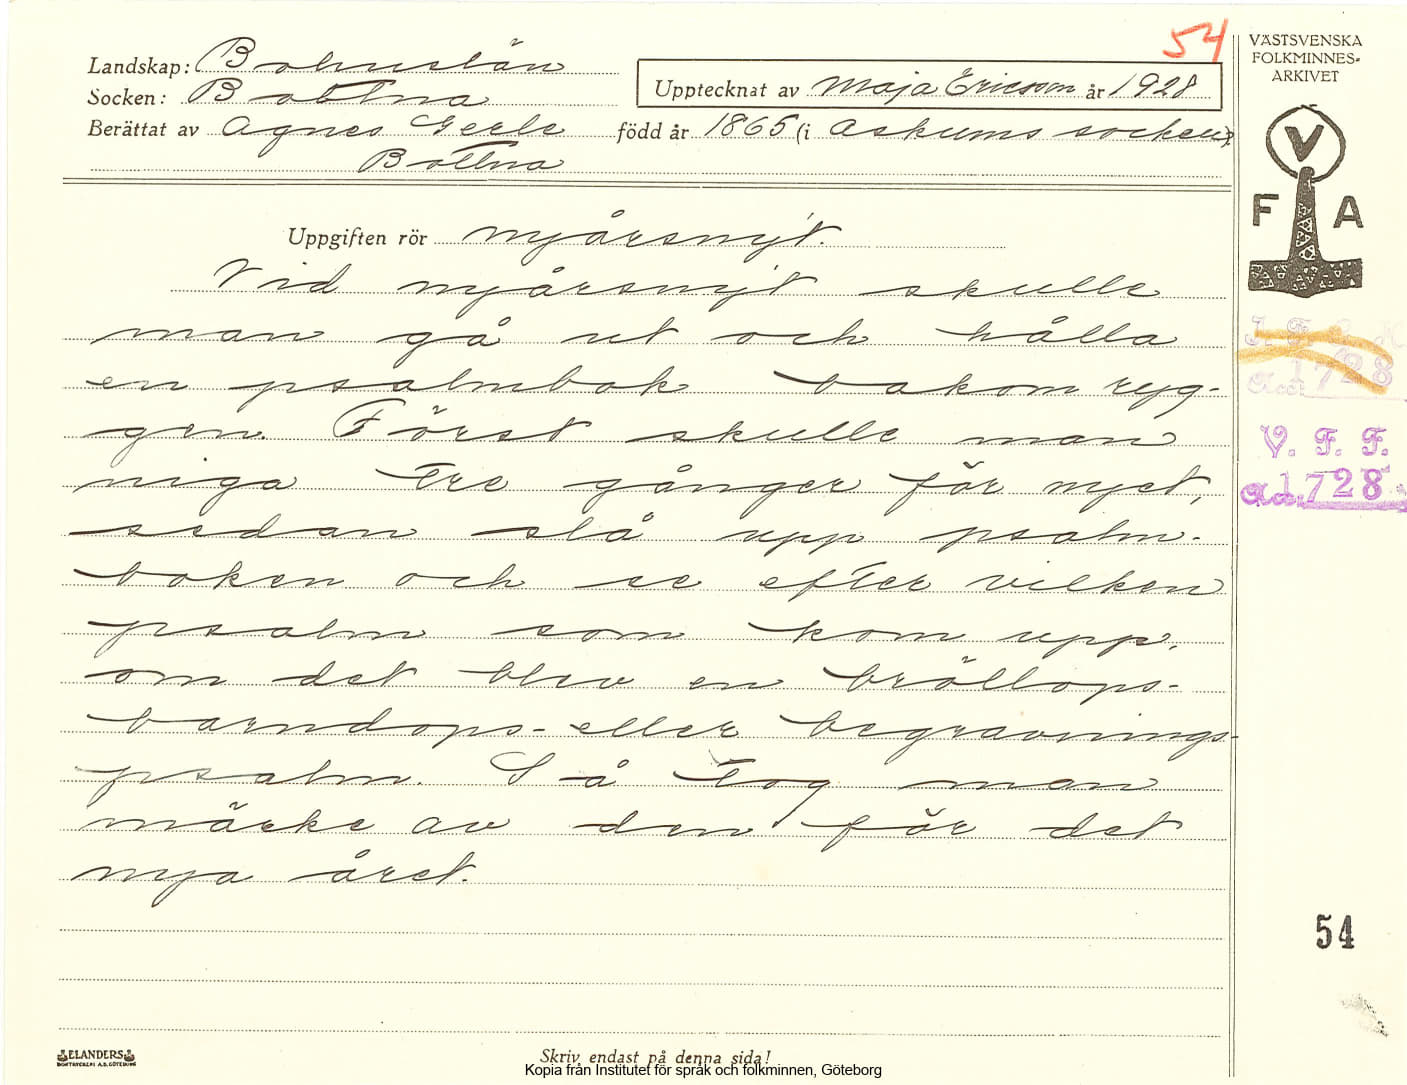 54
VÄSTSVENSKA
FOLKMINNES-
ARKIVET
Landskap: Bohuslän
Socken: Bottna
Upptecknat av Maja Ericson år 1928
Berättat av Agnes Gerle född år 1865 (i Askums socken)
Bottna
V
F A
Uppgiften rör nyårsnyt.
Vid nyårsnyt skulle
man gå ut och hålla
en psalmbok bakom ryg-
gen. Först skulle man
niga tre gånger för nyet,
sedan slå upp psalm-
boken och se efter vilken
psalm som kom upp,
om det blev en bröllops-
barndops- eller begravnings-
psalm. Så tog man
märke av den för det
nya året.
1728
V. F. F.
Acc. 1728
54
ELANDERS
BOKTRYCKERI A.B. GÖTEBORG
Skriv endast på denna sida!
Kopia från Institutet för språk och folkminnen, Göteborg